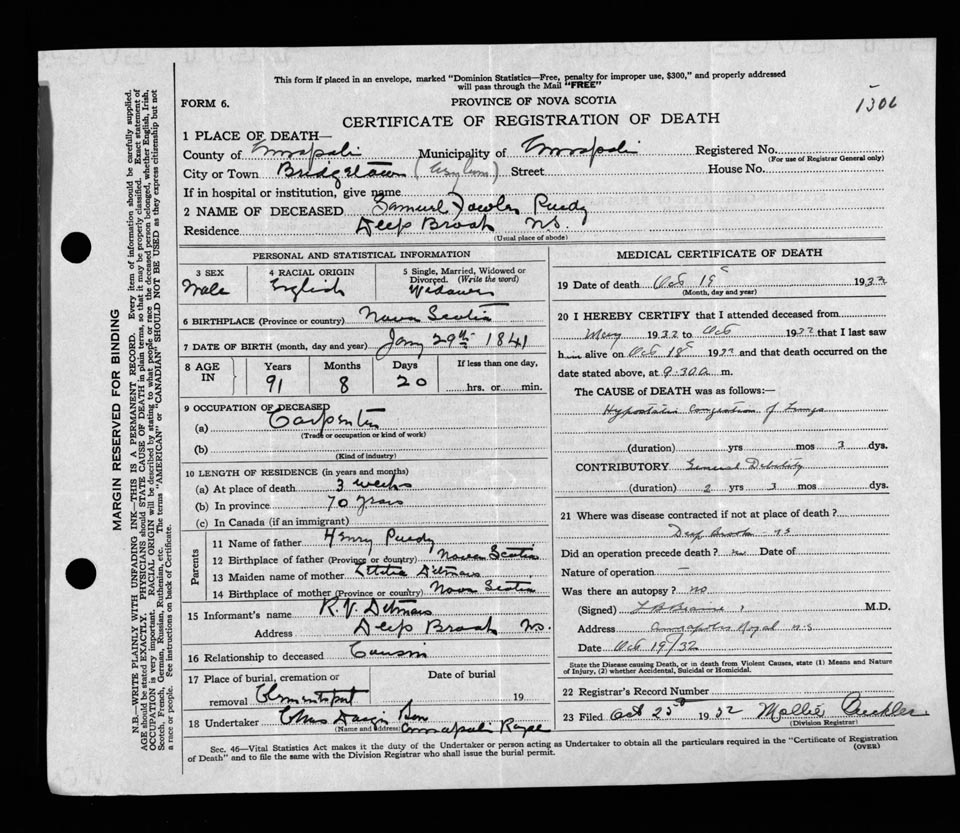 This form if placed in an envelope, marked "Dominion Statistics—Free, penalty for improper use, $300," and properly addressed
will pass through the Mail "FREE"
FORM 6.
PROVINCE OF NOVA SCOTIA
1306
CERTIFICATE OF REGISTRATION OF DEATH
1 PLACE OF DEATH—
County of Annapolis Municipality of Annapolis Registered No.
(For use of Registrar General only)
City or Town Bridgetown (Asylum) Street House No.
If in hospital or institution, give name
2 NAME OF DECEASED Samuel Fowler Purdy
Residence Deep Brook N.S.
(Usual place of abode)
PERSONAL AND STATISTICAL INFORMATION
3 SEX Male
4 RACIAL ORIGIN English
5 Single, Married, Widowed or Divorced. (Write the word) Widower
6 BIRTHPLACE (Province or country) Nova Scotia
7 DATE OF BIRTH (month, day and year) Jany 29th 1841
8 AGE IN Years Months Days If less than one day,
91 8 20 hrs. or min.
9 OCCUPATION OF DECEASED
(a) Carpenter
(Trade or occupation or kind of work)
(b)
(Kind of industry)
10 LENGTH OF RESIDENCE (in years and months)
(a) At place of death 3 weeks
(b) In province 70 years
(c) In Canada (if an immigrant)
Parents
11 Name of father Henry Purdy
12 Birthplace of father (Province or country) Nova Scotia
13 Maiden name of mother Letitia Ditmars
14 Birthplace of mother (Province or country) Nova Scotia
15 Informant's name R. V. Ditmars
Address Deep Brook N.S.
16 Relationship to deceased Cousin
17 Place of burial, cremation or Date of burial
removal Clementsport 19
18 Undertaker Chas
(Name and address) Annapolis Royal
MEDICAL CERTIFICATE OF DEATH
19 Date of death Oct 19 1932
(Month, day and year)
20 I HEREBY CERTIFY that I attended deceased from
May 1932 to Oct 1932 that I last saw
him alive on Oct 18 1932 and that death occurred on the
date stated above, at 9.30 a m.
The CAUSE of DEATH was as follows:—
Hypostatic Congestion of Lungs
(duration) yrs mos 3 dys.
CONTRIBUTORY General Debility
(duration) 2 yrs 3 mos dys.
21 Where was disease contracted if not at place of death?
Deep Brook N S
Did an operation precede death? no Date of
Nature of operation —
Was there an autopsy? no
(Signed) M.D.
Address Annapolis Royal N.S
Date Oct 19/32
State the Disease causing Death, or in death from Violent Causes, state (1) Means and Nature
of Injury, (2) whether Accidental, Suicidal or Homicidal.
22 Registrar's Record Number
23 Filed Oct 25th 1932 Mollie
(Division Registrar)
Sec. 46—Vital Statistics Act makes it the duty of the Undertaker or person acting as Undertaker to obtain all the particulars required in the "Certificate of Registration
of Death" and to file the same with the Division Registrar who shall issue the burial permit.
(OVER)
MARGIN RESERVED FOR BINDING
N.B.—WRITE PLAINLY WITH UNFADING INK—THIS IS A PERMANENT RECORD. Every item of information should be carefully supplied.
AGE should be stated EXACTLY. PHYSICIANS should STATE CAUSE OF DEATH in plain terms, so that it may be properly classified. Exact statement of
OCCUPATION is very important. RACIAL ORIGIN will be described by stating to what people or race the deceased person belonged, whether English, Irish,
Scotch, French, German, Russian, Ruthenian, etc. The terms "AMERICAN" or "CANADIAN" SHOULD NOT BE USED as they express citizenship but not
a race or people. See instructions on back of Certificate.